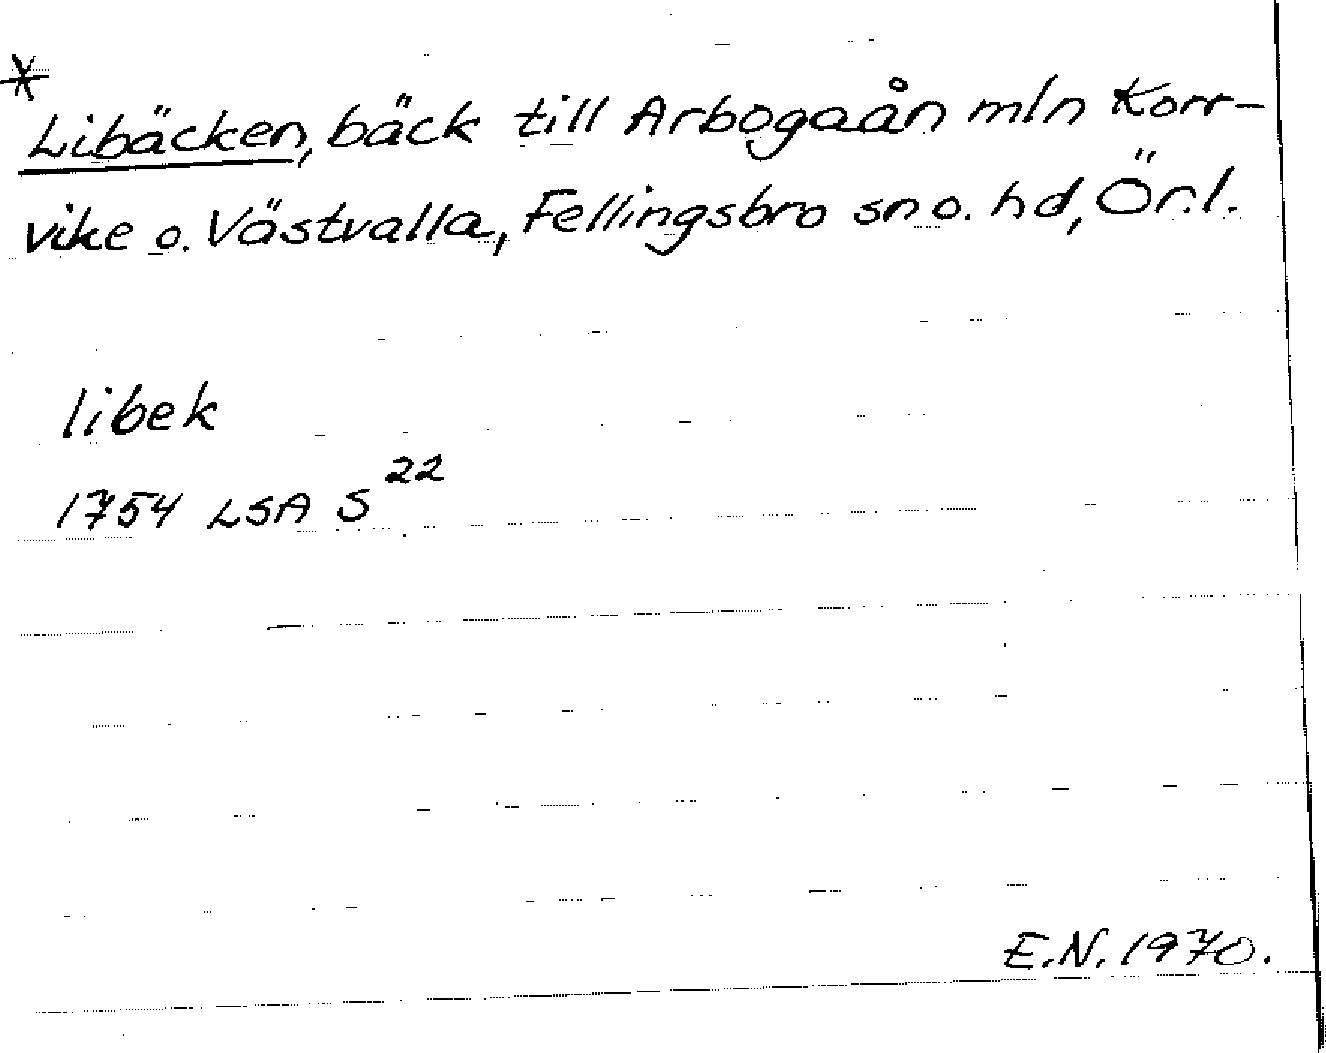 *
Libäcken, bäck till Arbogaån mln Korr-
vike o. Västvalla, Fellingsbro sn o. hd, Ör.l.
libek
1754 LSA S 22
E.N. 1970.